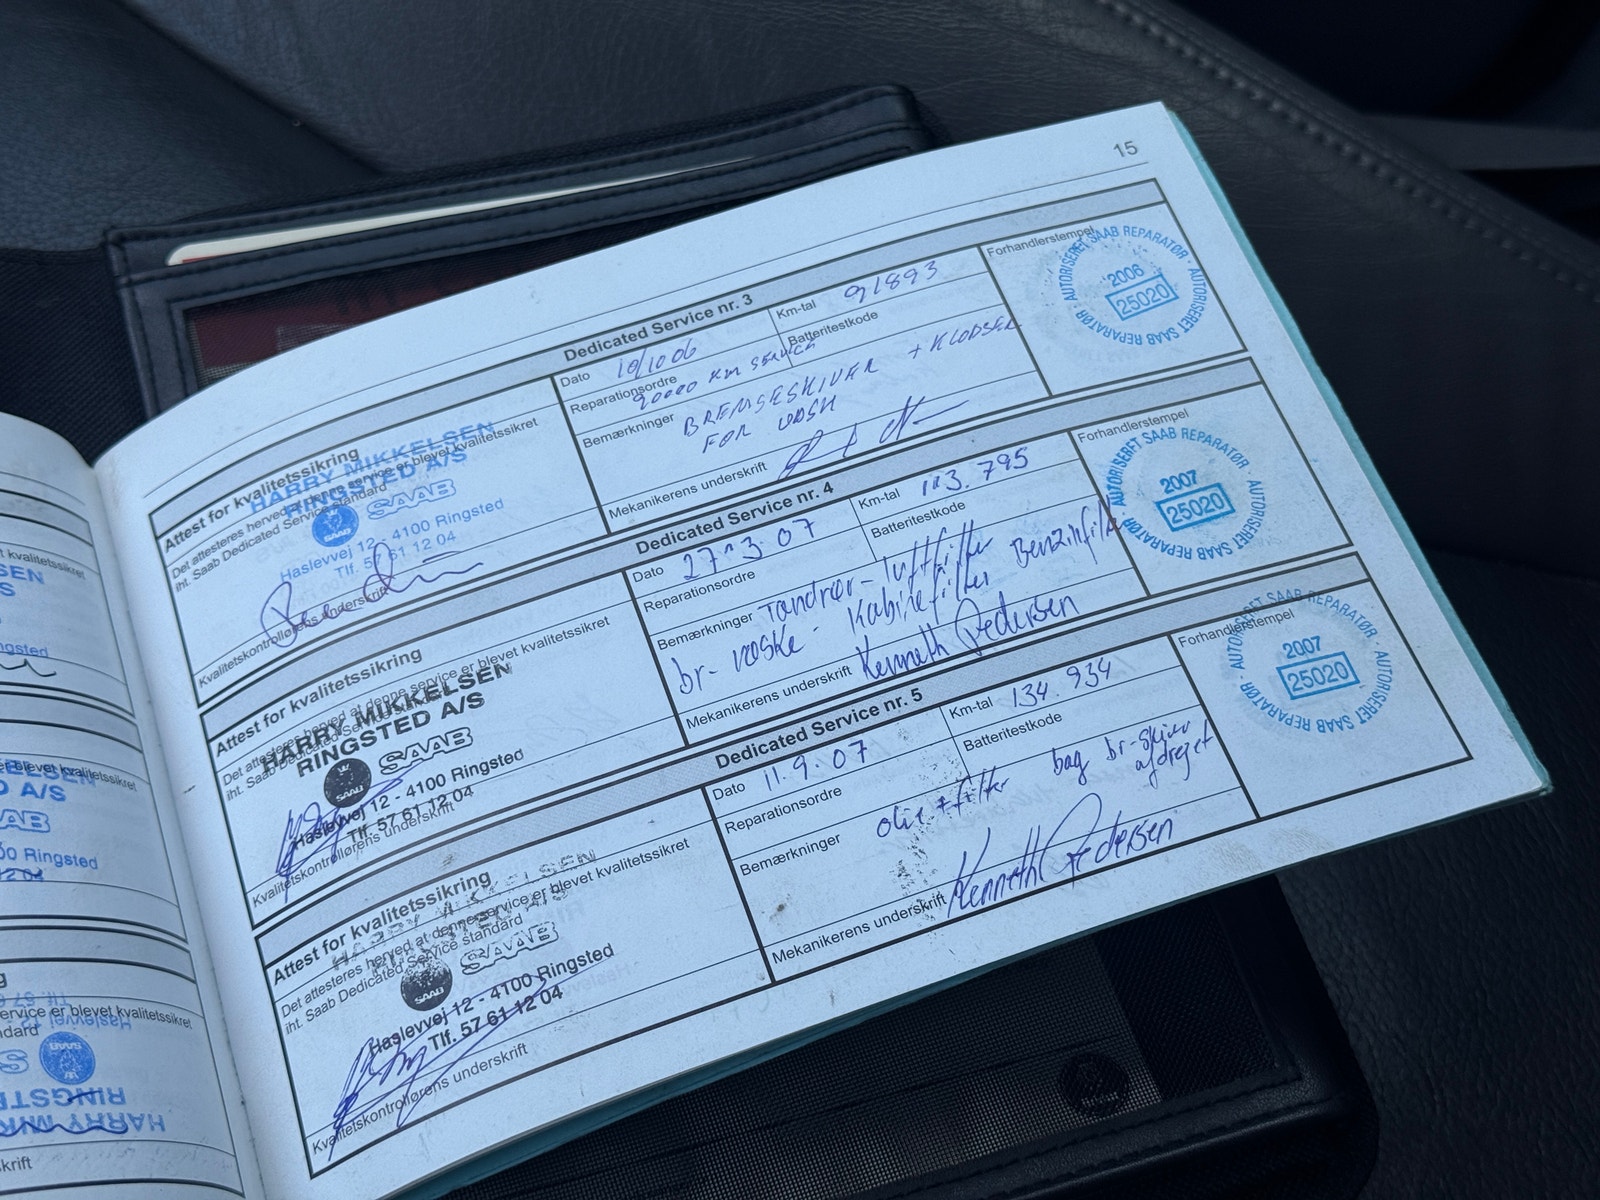 15
Dedicated Service nr. 3
Dato 10/10 06
Km-tal 91893
Forhandlerstempel
AUTORISERET SAAB REPARATØR - AUTORISERET SAAB REPARATØR -
2006
25020
Reparationsordre
90000 KM SERVICE
Batteritestkode
Bemærkninger BREMSESKIVER + KLODSER
FOR
Mekanikerens underskrift
Attest for kvalitetssikring
Det attesteres herved at denne service er blevet kvalitetssikret
iht. Saab Dedicated Service standard
HARRY MIKKELSEN
RINGSTED A/S
SAAB
SAAB
Haslevvej 12 - 4100 Ringsted
Tlf. 57 61 12 04
Kvalitetskontrollørens underskrift
Dedicated Service nr. 4
Dato 27 3 07
Km-tal 113.795
Forhandlerstempel
AUTORISERET SAAB REPARATØR - AUTORISERET SAAB REPARATØR -
2007
25020
Reparationsordre
Batteritestkode
Bemærkninger Tændrør - luftfilter Benzinfilter
br- væske - Kabinefilter
Mekanikerens underskrift Kenneth Pedersen
Attest for kvalitetssikring
Det attesteres herved at denne service er blevet kvalitetssikret
iht. Saab Dedicated Service standard
HARRY MIKKELSEN
RINGSTED A/S
SAAB
SAAB
Haslevvej 12 - 4100 Ringsted
Tlf. 57 61 12 04
Kvalitetskontrollørens underskrift
Dedicated Service nr. 5
Dato 11.9.07
Km-tal 134.934
Forhandlerstempel
AUTORISERET SAAB REPARATØR - AUTORISERET SAAB REPARATØR -
2007
25020
Reparationsordre
Batteritestkode
Bemærkninger olie + filter bag br-skiver
afdrejet
Mekanikerens underskrift Kenneth Pedersen
Attest for kvalitetssikring
Det attesteres herved at denne service er blevet kvalitetssikret
iht. Saab Dedicated Service standard
HARRY MIKKELSEN
RINGSTED A/S
SAAB
SAAB
Haslevvej 12 - 4100 Ringsted
Tlf. 57 61 12 04
Kvalitetskontrollørens underskrift